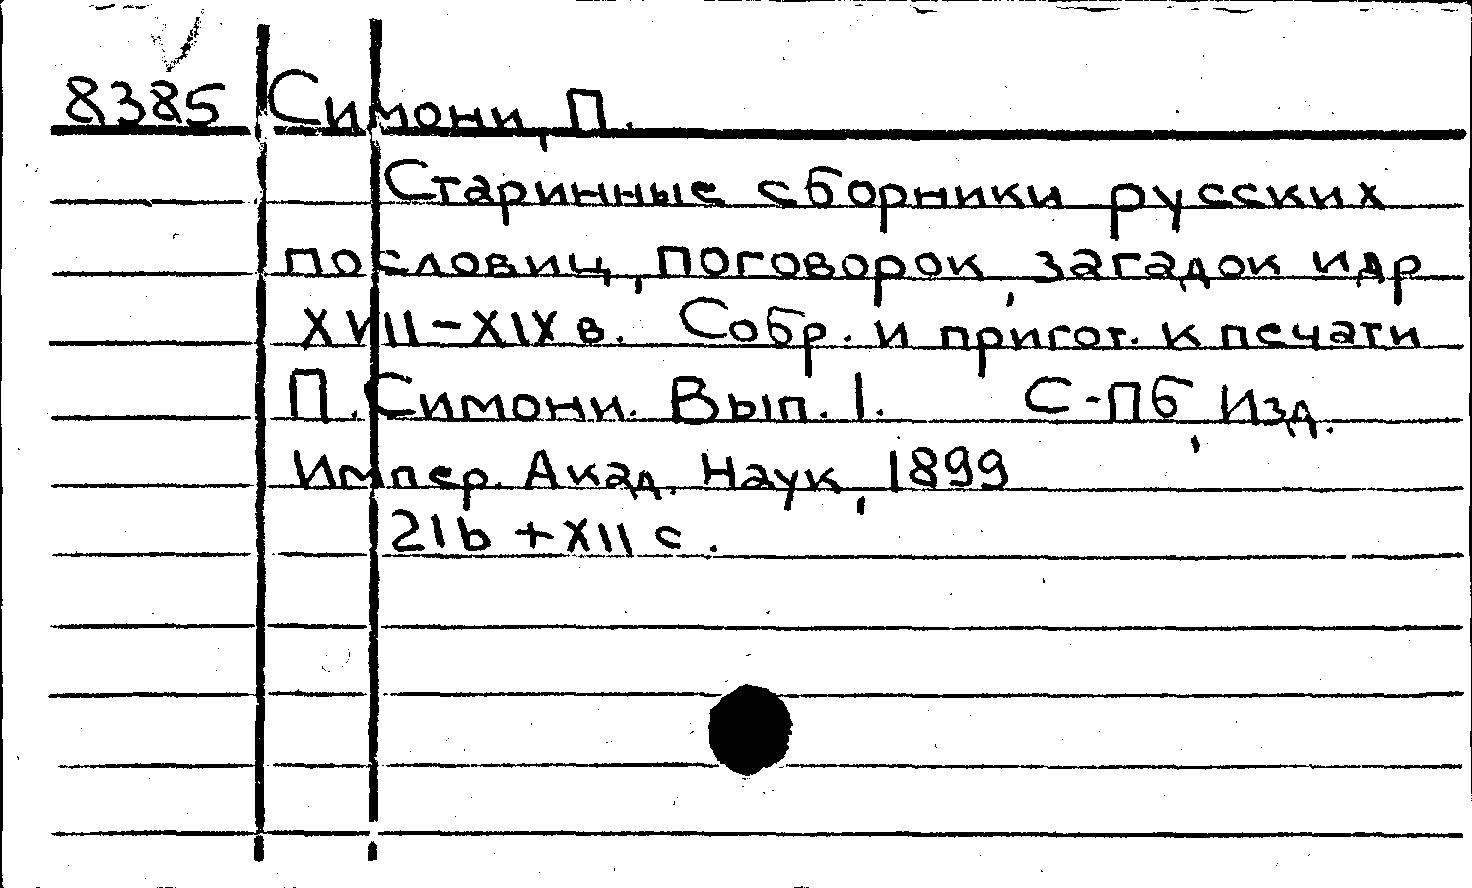 8385 Симони, П.
Старинные сборники русских
пословиц, поговорок, загадок и др
XVII-XIX в. Собр. и пригот. к печати
П. Симони. Вып. 1. С-Пб, Изд.
Импер. Акад. Наук, 1899
216 + XII с.